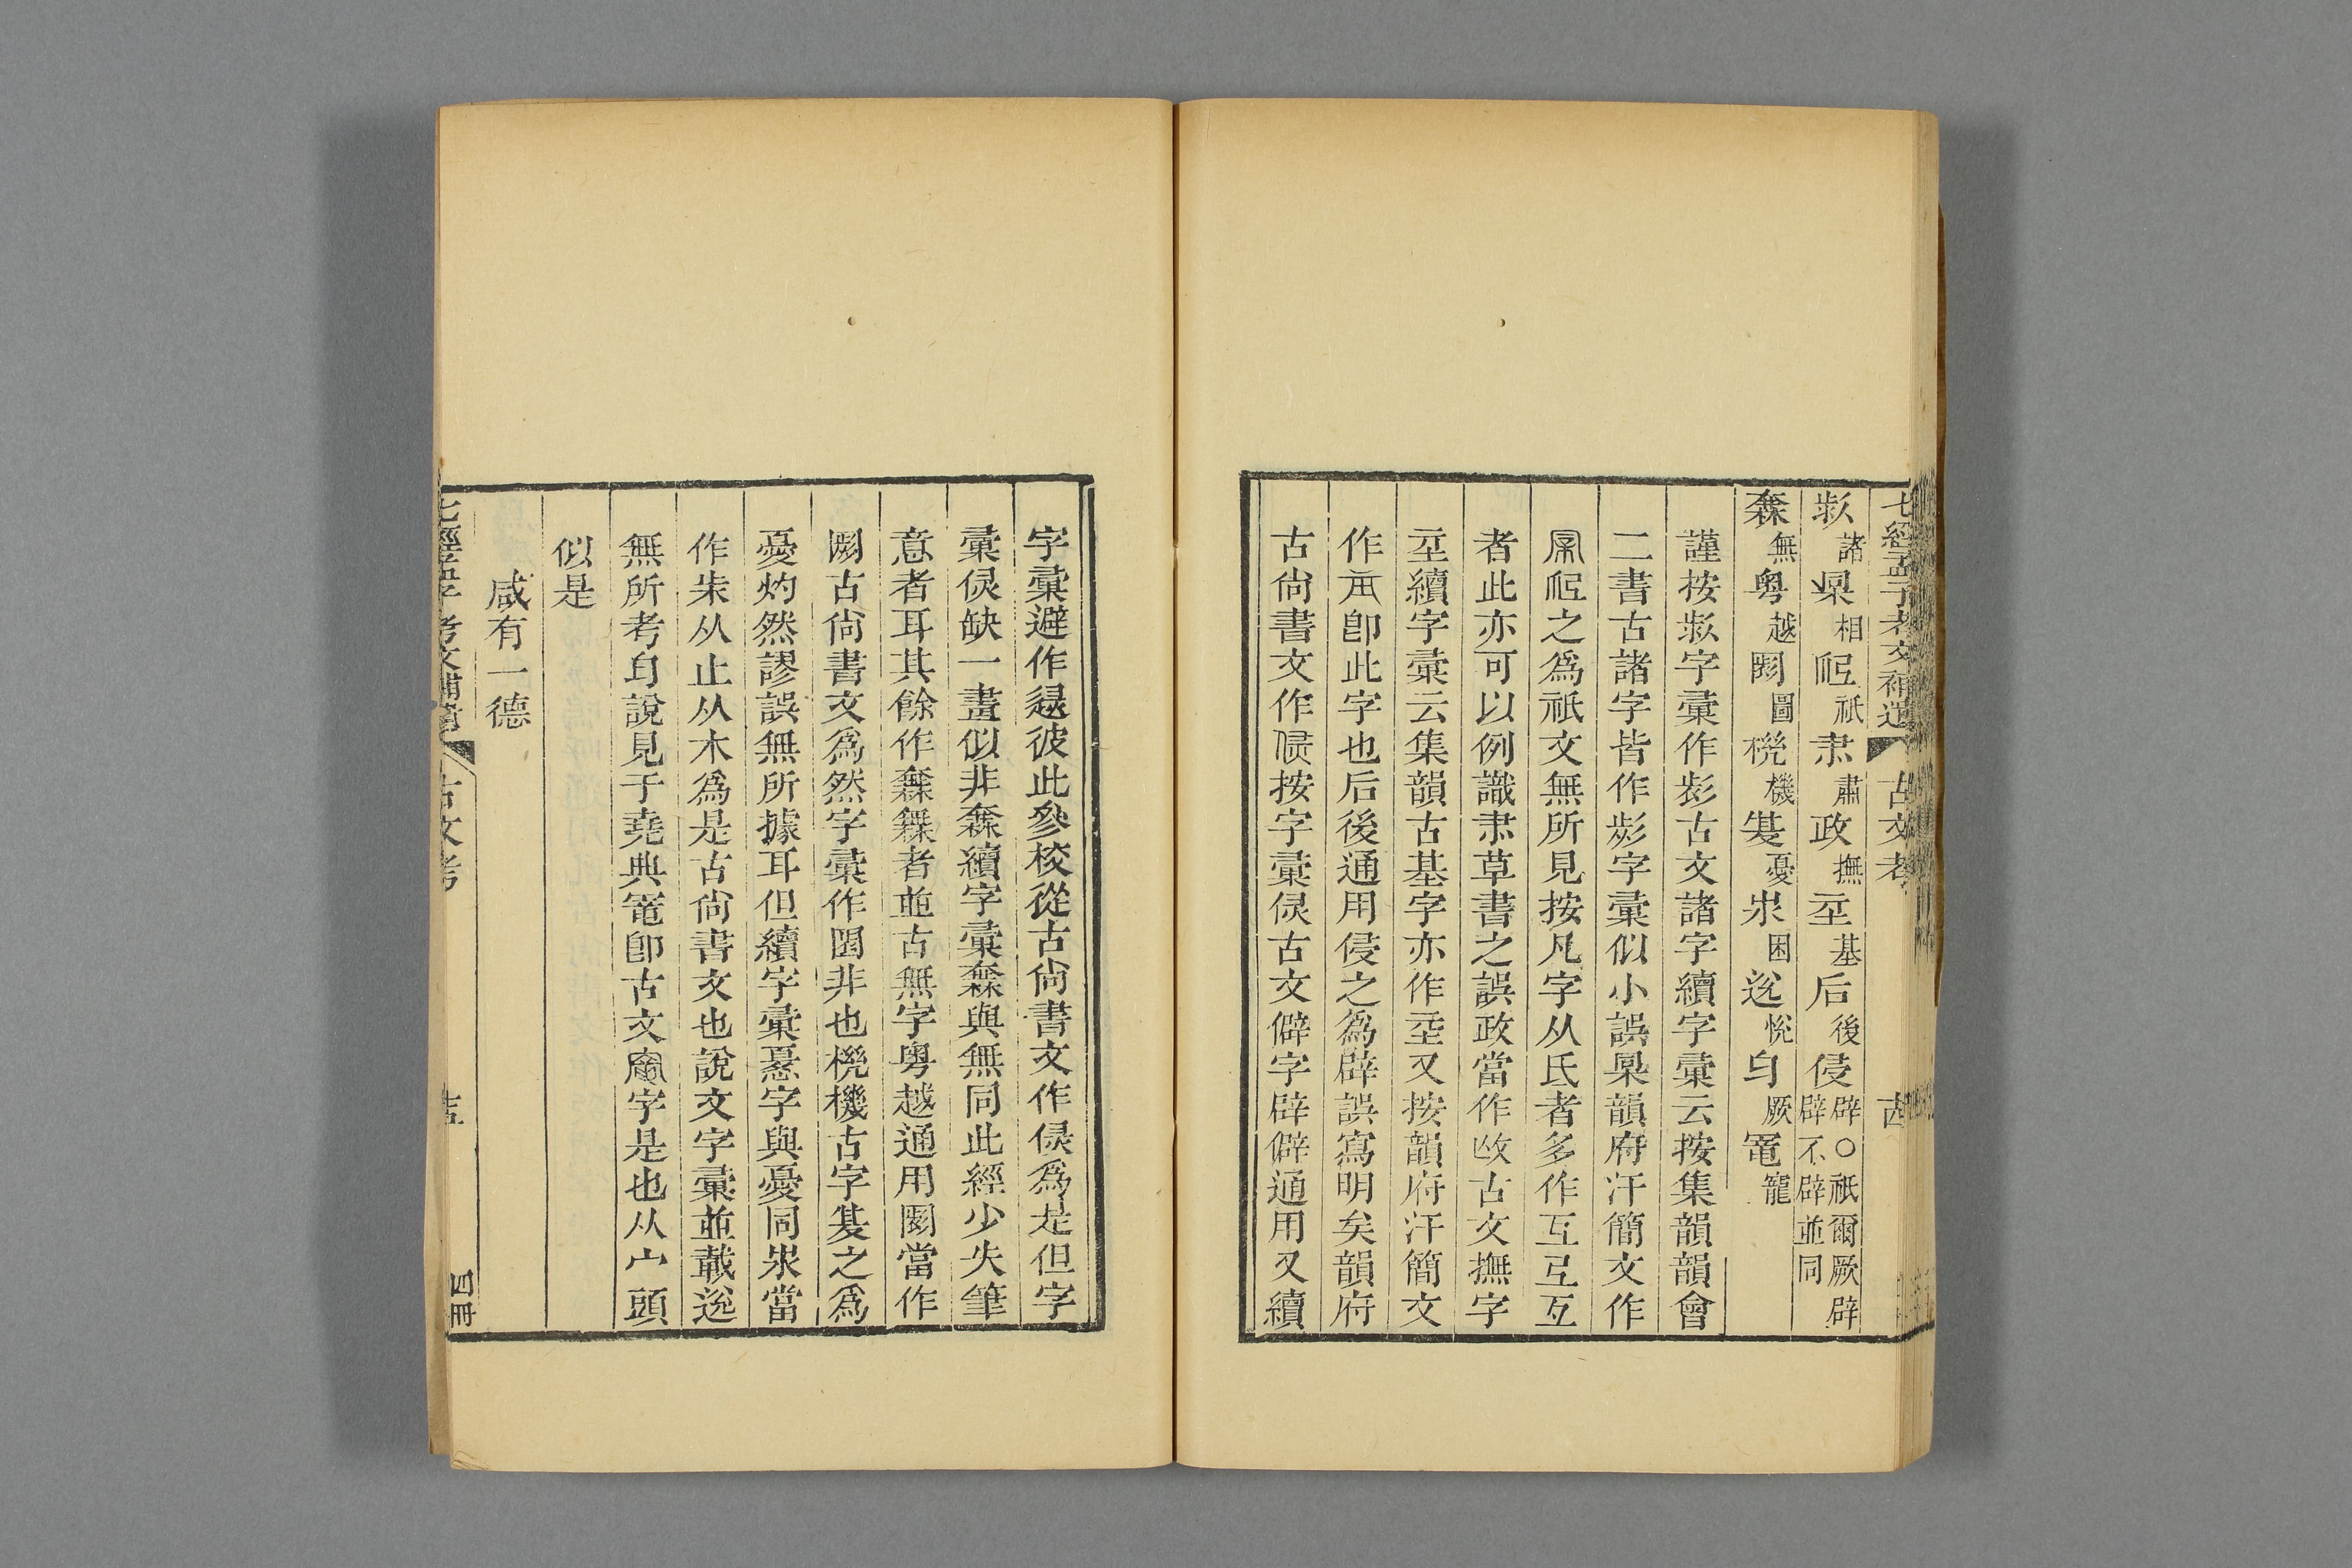 七經孟子考文補遺 古文考 古
諸 相 祇 肅 政 撫 基 后 後 侵 辟○祇爾厥辟
辟不辟並同
無 粵 越 圖 機 憂 困 悅 厥 寵
謹按 字彙作 古文諸字續字彙云按集韻韻會
二書古諸字皆作 字彙似小誤 韻府汗簡文作
之爲祇文無所見按凡字从氏者多作互
者此亦可以例識 草書之誤政當作 古文撫字
續字彙云集韻古基字亦作 又按韻府汗簡文
作 卽此字也后後通用侵之爲辟誤寫明矣韻府
古尙書文作 按字彙 古文僻字辟僻通用又續
字彙避作 彼此參校從古尙書文作 爲是但字
彙 缺一畫似非 續字彙 與無同此經少失筆
意者耳其餘作 者並古無字粵越通用 當作
古尙書文爲然字彙作圀非也 機古字 之爲
憂灼然謬誤無所據耳但續字彙 字與憂同 當
作 从止从木爲是古尙書文也說文字彙並載
無所考 說見于堯典 卽古文 字是也从宀頭
似是
咸有一德
七經孟子考文補遺 古文考 十五 四冊